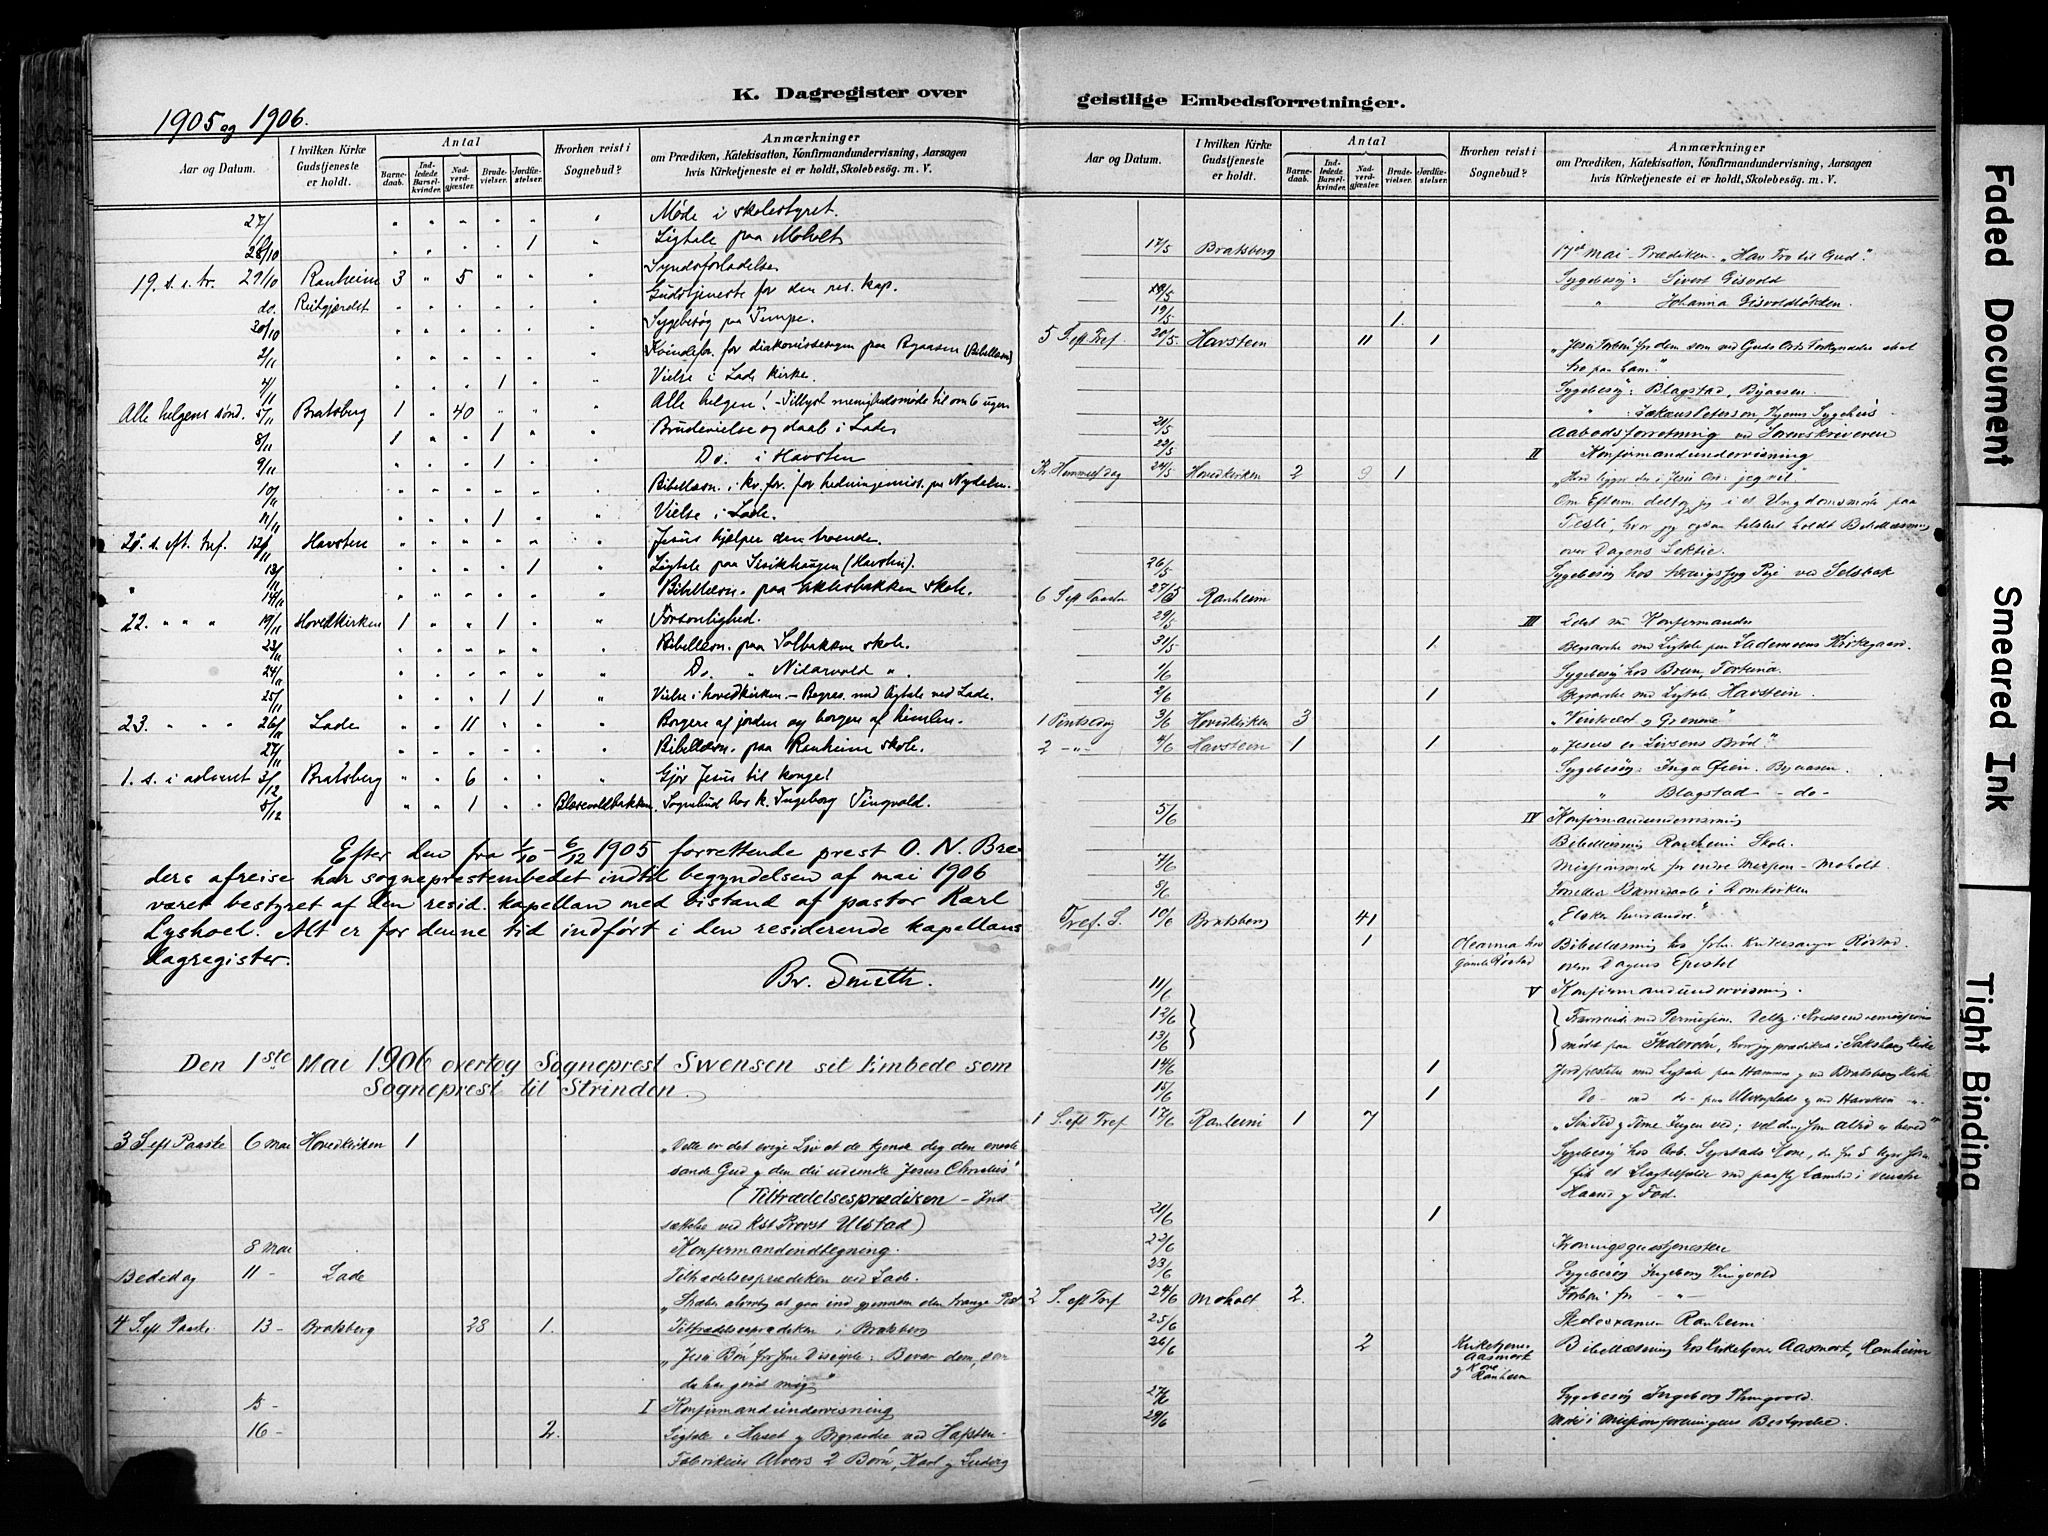 K. Dagregister over
1905 og 1906.
Aar og Datum. I hvilken Kirke Gudstjeneste er holdt. Antal Barnedaab. Indledede Barselkvinder. Nadverdgjæster. Brudevielser. Jordfæstelser. Hvorhen reist i Sognebud? Anmærkninger om Prædiken, Katekisation, Konfirmandundervisning, Aarsagen hvis Kirketjeneste ei er holdt, Skolebesøg. m. V.
27/10 Møde i skolestyret.
28/10 1 Ligtale paa Moholt
Syndsforladelse
19. s. e. tr. 29/10 Ranheim 3 " 5 Gudstjeneste for den res. kap.
do. Reitgjærdet
30/10 Sygebesøg paa Tempe.
2/11 Kvindefor. for diakonissesagen paa Byaasen (Bibellæsn)
4/11 1 Vielse i Lade Kirke.
Alle helgens sønd. 5/11 Bratsberg 1 " 40 Alle helgen! - Tillyst menighedsmøde til om 6 uger
8/11 1 " " 1 Brudevielse og daab i Lade
9/11 1 Do. i Havsten
10/11 Bibellæsn. i kv. for. for hedningemiss. paa Nydalen.
11/11 1 Vielse i Lade.
20. s. eft. tref. 12/11 Havsten Jesus hjælper den troende.
13/11 1 Ligtale paa (Havsten).
" 14/11 Bibellæsn. paa Eklesbakken skole.
22. " " " 19/11 Hovedkirken 1 " " 1 Forsonlighed.
23/11 Bibellæsn. paa Solbakken skole.
24/11 Do. " Nidarvold "
25/11 1 1 Vielse i hovedkirken. - Begrav. med ligtale ved Lade.
23. " " " 26/11 Lade 11 Borgere af jorden og borgere af himlen.
27/11 Bibellæsn. paa Ranheim skole.
1. s. i advent 3/12 Bratsberg " " 6 Gjør Jesus til konge!
5/12 " " 1 Blæsevoldbakken. Sognebud hos k. Ingeborg Tingvold.
Efter den fra 1/10 - 6/12 1905 forrettende prest O. N. Bre
ders afreise har sogneprestembedet indtil begyndelsen af mai 1906
været bestyret af den resid. kapellan med bistand af pastor Karl
Lyshoel. Alt er for denne tid indført i den residerende kapellans
dagregister.
Br. Smith.
Den 1ste Mai 1906 overtog Sogneprest Swensen sit Embede som
Sogneprest til Strinden.
3 S. eft Paaske 6 Mai Hovedkirken 1 "Dette er det evige Liv at de kjende dig den eneste
sande Gud og den du udsendte Jesus Christus"
(Tiltrædelsesprædiken - Ind
sættelse ved Kst Provst Ulstad)
8 Mai Konfirmandindtegning.
Bededag 11 - Lade Tiltrædelsesprædiken ved Lade.
"Stræber alvorlig at gaa ind gjennem den trange Port
4 S. eft. Paaske 13 - Bratsberg 28 1. Tiltrædelsesprædiken i Bratsberg
"Jesu Bøn for sine Disciple: Bevar dem, som
du har givet mig"
15 - I Konfirmandundervisning
16 - 2. Ligtale i Huset og Begravelse ved Hafsten -
Fabrikeier Alvers 2 Børn, Karl og Ludvig
geistlige Embedsforretninger.
Aar og Datum. I hvilken Kirke Gudstjeneste er holdt. Antal Barnedaab. Indledede Barselkvinder. Nadverdgjæster. Brudevielser. Jordfæstelser. Hvorhen reist i Sognebud? Anmærkninger om Prædiken, Katekisation, Konfirmandundervisning, Aarsagen hvis Kirketjeneste ei er holdt, Skolebesøg. m. V.
17/5 Bratsberg 17de Mai - Prædiken. "Hav Tro til Gud".
19/5 Sygebesøg: Sivert Gisvold
" Johanna Gisvoldløkken.
19/5 1.
5 S. eft Tref. 20/5. Havstein 11 1 "Jesu Forbøn for dem som ved Guds Ords Forkyndelse skal
tro paa ham."
Sygebesøg: Blagstad, Byaasen.
" :
21/5 Aabodsforretning ved Sorenskriveren
22/5 II Konfirmandundervisning
Kr. Himmelf dag 24/5 Hovedkirken 2 9 1
Om Efterm. deltog jeg i et Ungdomsmøde paa
Tesli, hvor jeg ogsaa tilslut holdt Bibellæsning
over Dagens Lektie.
26/5 Sygebesøg hos ved Selsbak
6 S eft Paaske 27/5 Ranheim
29/5 III Konfirmander
31/5 1. Begravelse med Ligtale paa Lademoens Kirkegaard.
1/6 Sygebesøg hos Fortuna.
2/6 1 Begravelse med Ligtale Havstein.
1 Pintsedag 3/6 Hovedkirken 3 "Vintræet og Grenene"
2 -"- 4/6 Havstein 1 1 "Jesus er Livsens Brød"
Sygebesøg: Inga Øien. Byaasen.
" Blagstad - do -
5/6 IV Konfirmandundervisning
Bibellæsning Ranheim Skole.
7/6 Missionsmøde for indre Mission - Moholt.
8/6 Forrettet Barnedaab i Domkirken
Tref. S. 10/6 Bratsberg 41 "Elsker hverandre."
1 Oleanna hos gamle Røstad Bibellæsning hos forhv. Kirkesanger Røstad.
over Dagens Epistel
11/6 V Konfirmandundervisning.
12/6 Fraværende med Permission. Deltog i Kredsens
13/6 møde paa Inderøen, hvor jeg prædiket i Sakshaug Kirke
14/6 1 Jordfæstelse med Ligtale paa Hammer og ved Bratsberg Kirke
15/6 1 Do - med do - paa og ved Havstein -"-
1 S. eft Tref 17/6 Ranheim 1 7
Sygebesøg hos Arb. Kone, der for 5 Uger siden
fik et Slagtilfælde med paafølg Lamhed i venstre
Haand og Fod.
21/6 1
22/6 Kroningsgudstjeneste
23/6 Sygebesøg Ingeborg Tingvold
2 S. eft Tref 24/6 Moholt 2. Forbøn for -"-
25/6 Skoleexamen Ranheim
26/6 2 Kirketjener Aasmork og Kone Ranheim Bibellæsning hos Kirketjener Aasmork, Ranheim
27/6 Sygebesøg Ingeborg Tingvold.
29/6 Møde i Missionsforeningens Bestyrelse.
Faded Document
Smeared Ink
Tight Binding